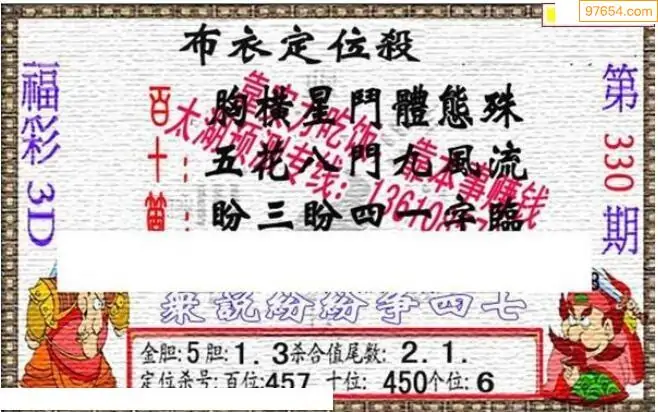 97654.com
布衣定位殺
福彩3D
第330期
百 胸橫星鬥體態殊
十 五花八門九風流
盼三盼四一字臨
靠实力吃饭 靠本事赚钱
太湖预测专线:13610
眾說紛紛爭四七
金胆:5胆:1.3杀合值尾数:2.1.
定位杀号:百位:457 十位:450个位:6